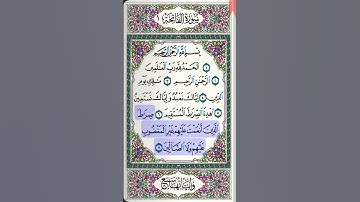 سورة الفاتحة ١
بسم الله الرحمن الرحيم
الحمد لله رب العالمين
الرحمن الرحيم مالك يوم
الدين إياك نعبد وإياك نستعين
اهدنا الصراط المستقيم صراط
الذين أنعمت عليهم غير المغضوب
عليهم ولا الضالين